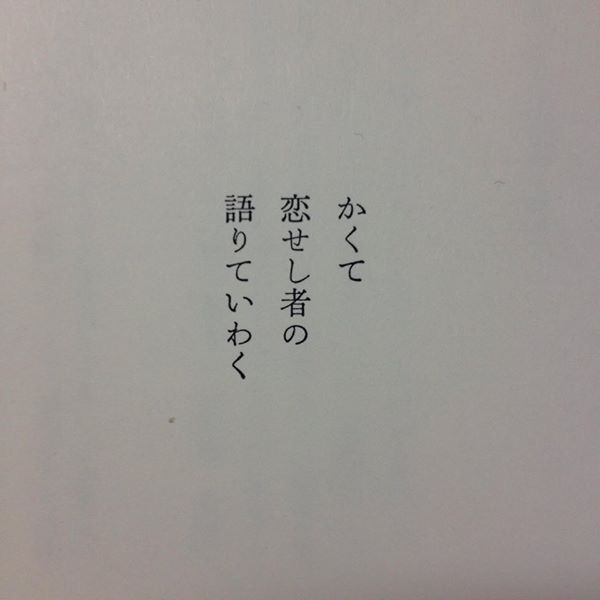 かくて
恋せし者の
語りていわく